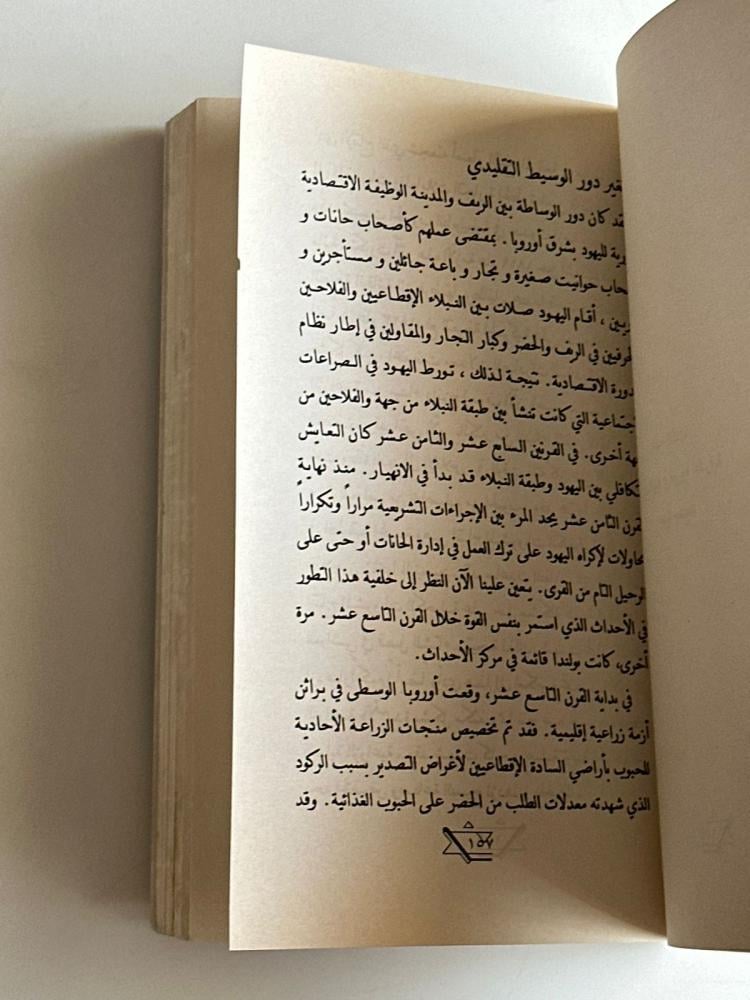 تغير دور الوسيط التقليدي
لقد كان دور الوساطة بين الريف والمدينة الوظيفة الاقتصادية
لليهود بشرق أوروبا. بمقتضى عملهم كأصحاب حانات و
أصحاب حوانيت صغيرة و تجار و باعة جائلين و مستأجرين و
، أقام اليهود صلات بين النبلاء الإقطاعيين والفلاحين
والحرفيين في الريف والحضر وكبار التجار والمقاولين في إطار نظام
الدورة الاقتصادية. نتيجة لذلك ، تورط اليهود في الصراعات
الاجتماعية التي كانت تنشأ بين طبقة النبلاء من جهة والفلاحين من
جهة أخرى. في القرنين السابع عشر والثامن عشر كان التعايش
التكافلي بين اليهود وطبقة النبلاء قد بدأ في الانهيار. منذ نهاية
القرن الثامن عشر يجد المرء بين الإجراءات التشريعية مراراً وتكراراً
محاولات لإكراه اليهود على ترك العمل في إدارة الحانات أو حتى على
الرحيل التام من القرى. يتعين علينا الآن النظر إلى خلفية هذا التطور
في الأحداث الذي استمر بنفس القوة خلال القرن التاسع عشر. مرة
أخرى، كانت بولندا قائمة في مركز الأحداث.
في بداية القرن التاسع عشر، وقعت أوروبا الوسطى في براثن
أزمة زراعية إقليمية. فقد تم تخصيص منتجات الزراعة الأحادية
للحبوب بأراضي السادة الإقطاعيين لأغراض التصدير بسبب الركود
الذي شهدته معدلات الطلب من الحضر على الحبوب الغذائية. وقد
١٥٧